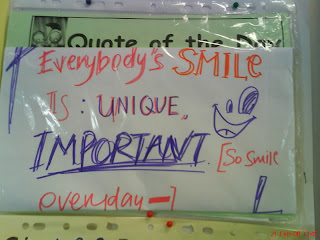 Quote of the Day
Everybody's SMILE
IS : UNIQUE,
IMPORTANT. [So smile
everyday-]